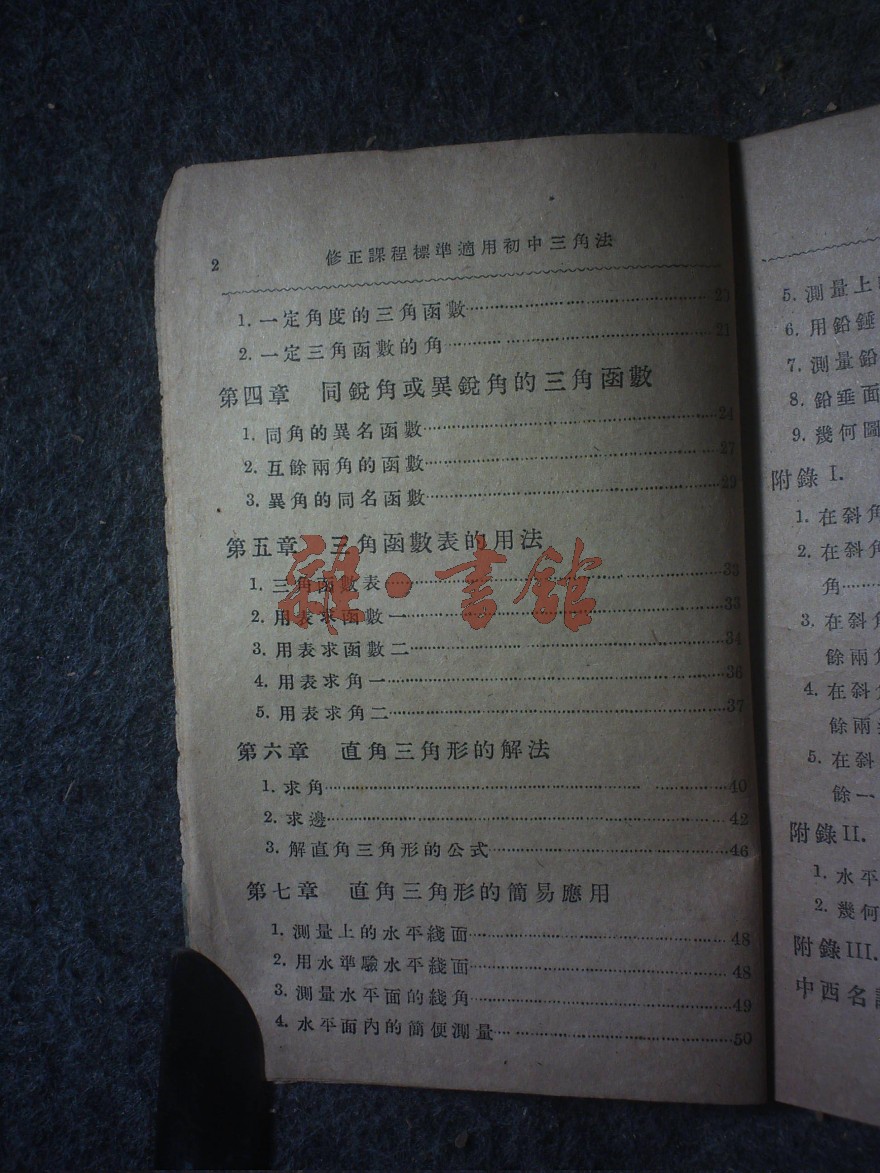 2 修正課程標準適用初中三角法
1. 一定角度的三角函數……20
2. 一定三角函數的角……21
第四章 同銳角或異銳角的三角函數
1. 同角的異名函數……24
2. 互餘兩角的函數……27
3. 異角的同名函數……29
第五章 三角函數表的用法
1. 三角函數表……33
2. 用表求函數一……33
3. 用表求函數二……34
4. 用表求角一……36
5. 用表求角二……37
第六章 直角三角形的解法
1. 求角……40
2. 求邊……42
3. 解直角三角形的公式……46
第七章 直角三角形的簡易應用
1. 測量上的水平綫面……48
2. 用水準驗水平綫面……48
3. 測量水平面的綫角……49
4. 水平面內的簡便測量……50
雜·書館
5. 測量上
6. 用鉛錘
7. 測量鉛
8. 鉛垂面
9. 幾何圖
附錄 I.
1. 在斜角
2. 在斜角
角……
3. 在斜角
餘兩角
4. 在斜
餘兩
5. 在斜
餘一
附錄 II.
1. 水平
2. 幾何
附錄 III.
中西名